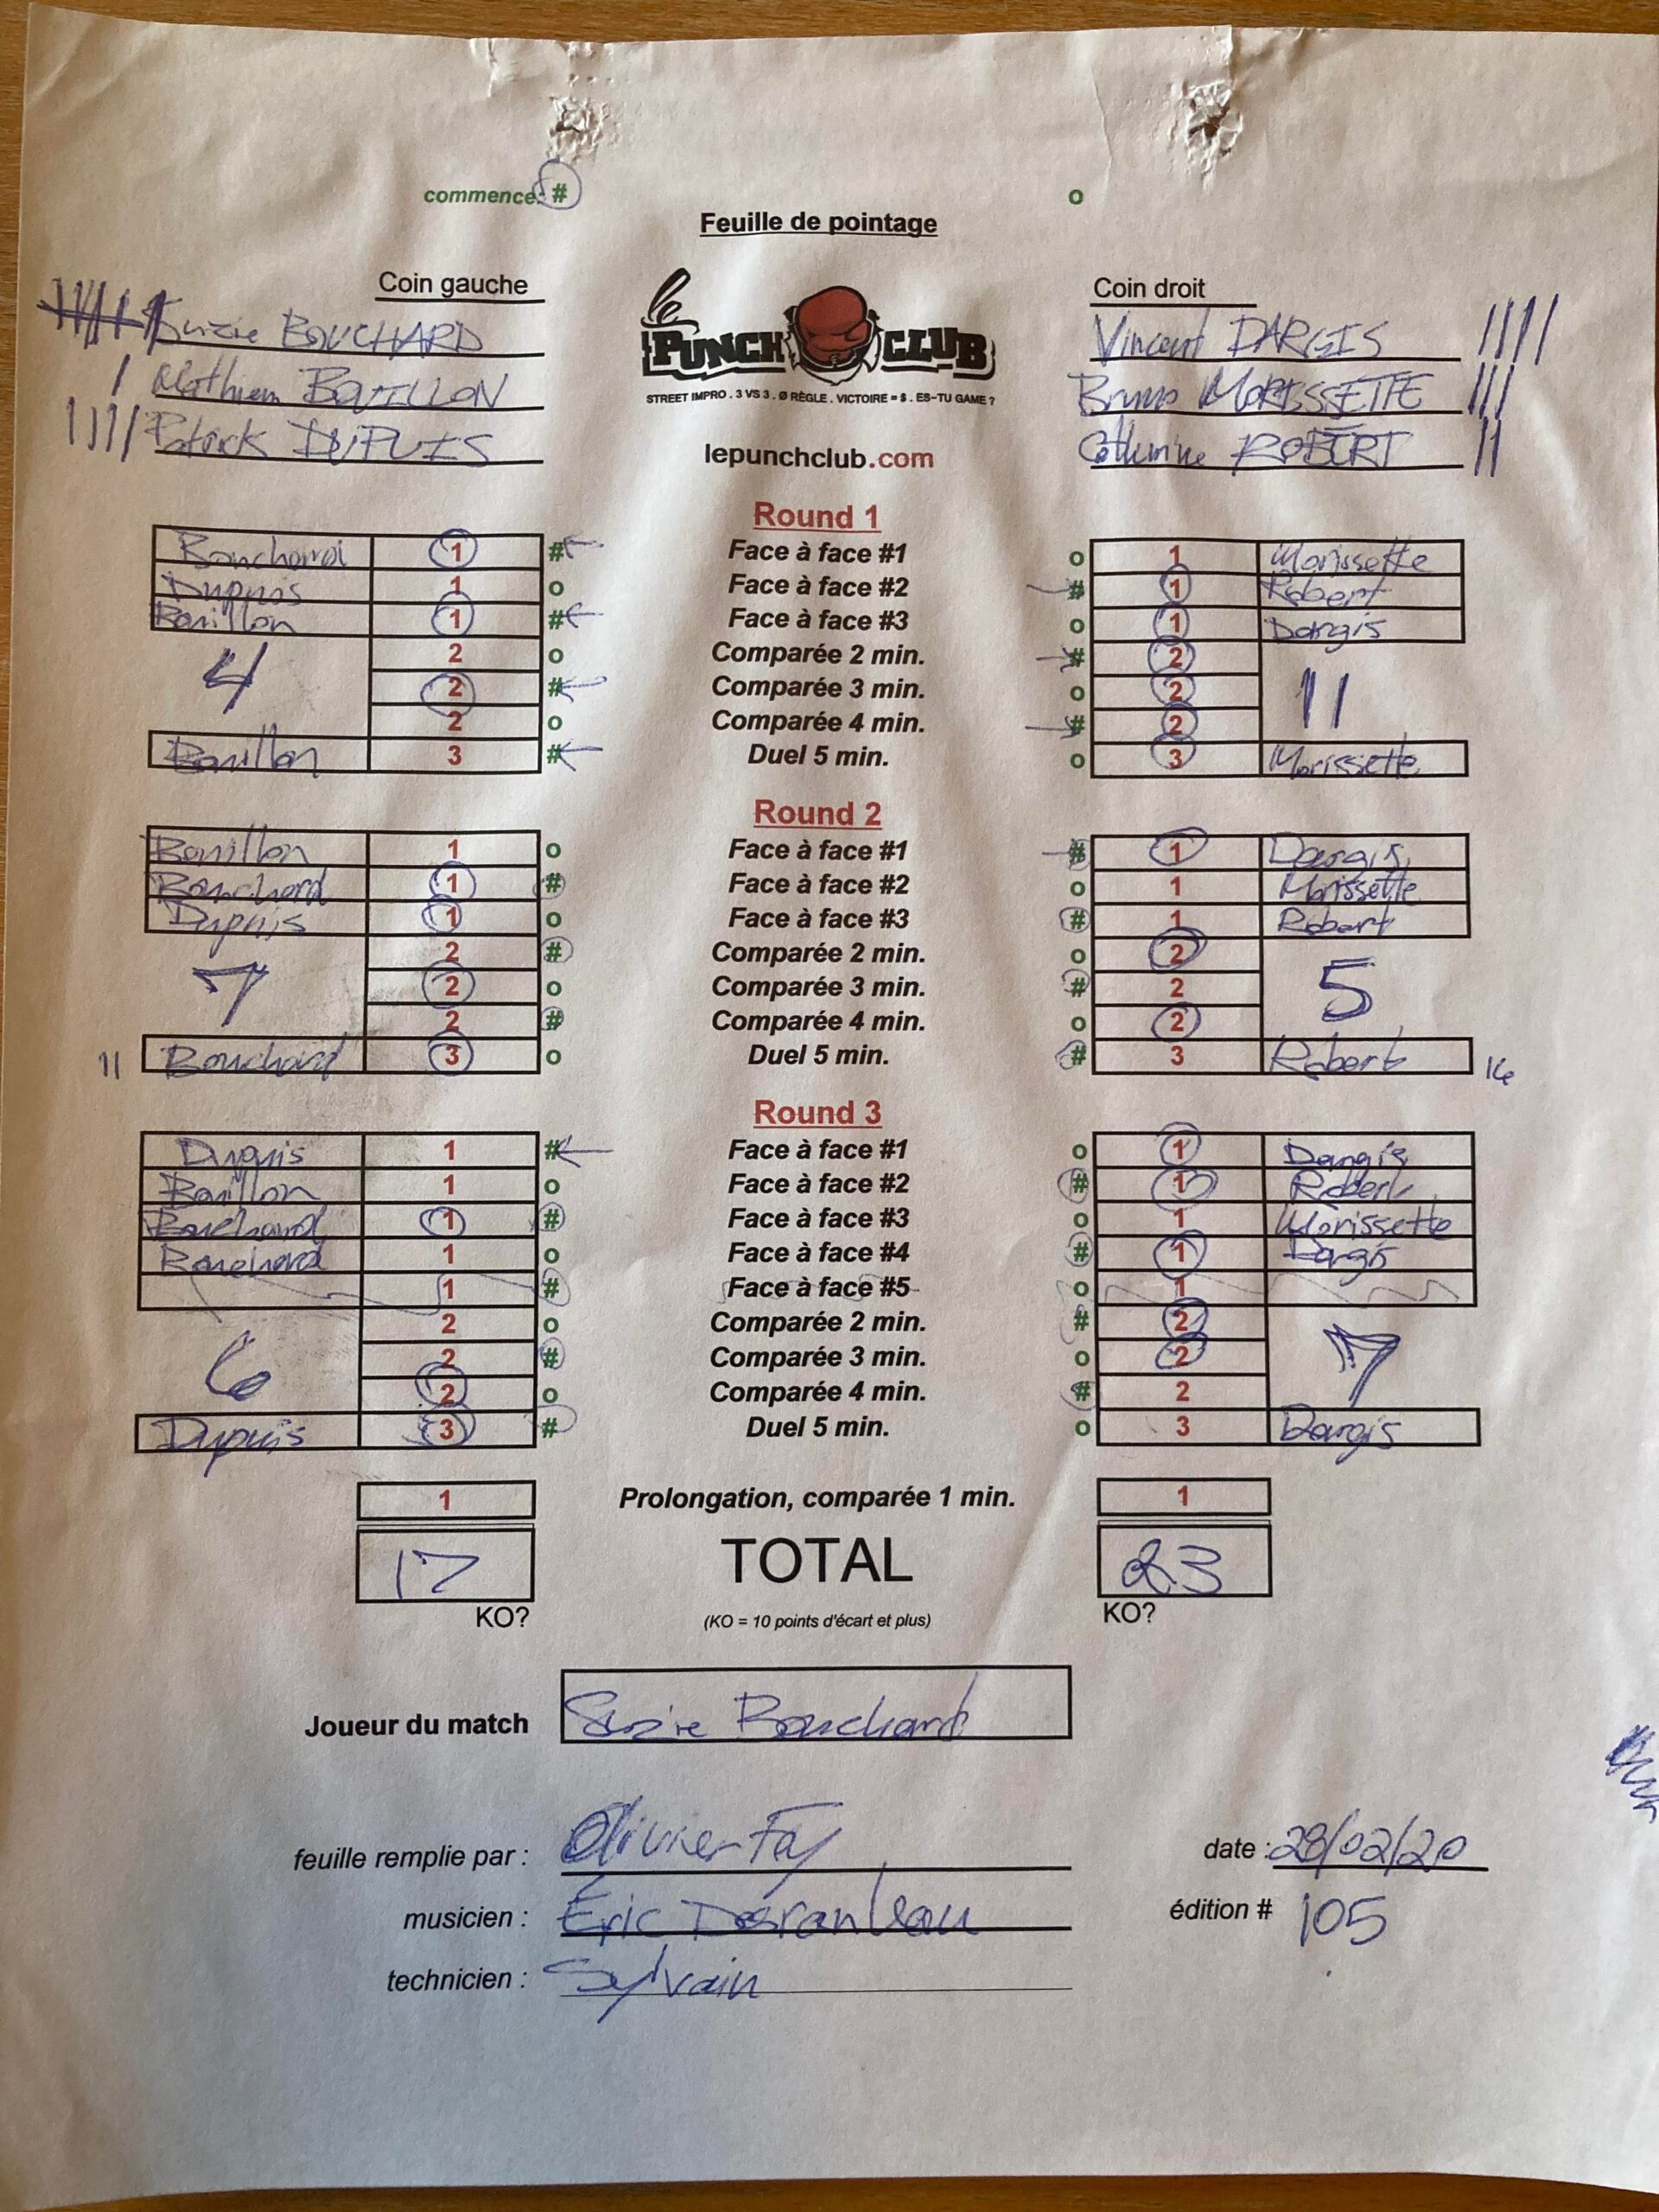 commence: # o
Feuille de pointage
Coin gauche Coin droit
Suzie BOUCHARD Vincent DARGIS
Mathieu BOUILLON Bruno MORISSETTE
Patrick DUPUIS Catherine ROBERT
le PUNCH CLUB
STREET IMPRO . 3 VS 3 . Ø RÈGLE . VICTOIRE = $ . ES-TU GAME ?
lepunchclub.com
Round 1
Bouchard 1 # Face à face #1 o 1 Morissette
Dupuis 1 o Face à face #2 # 1 Robert
Bouillon 1 # Face à face #3 o 1 Dargis
2 o Comparée 2 min. # 2
4 2 # Comparée 3 min. o 2 11
2 o Comparée 4 min. # 2
Bouillon 3 # Duel 5 min. o 3 Morissette
Round 2
Bouillon 1 o Face à face #1 # 1 Dargis
Bouchard 1 # Face à face #2 o 1 Morissette
Dupuis 1 o Face à face #3 # 1 Robert
2 # Comparée 2 min. o 2
7 2 o Comparée 3 min. # 2 5
2 # Comparée 4 min. o 2
11 Bouchard 3 o Duel 5 min. # 3 Robert 16
Round 3
Dupuis 1 # Face à face #1 o 1 Dargis
Bouillon 1 o Face à face #2 # 1 Robert
Bouchard 1 # Face à face #3 o 1 Morissette
Bouchard 1 o Face à face #4 # 1 Dargis
1 # Face à face #5 o 1
2 o Comparée 2 min. # 2
6 2 # Comparée 3 min. o 2 7
2 o Comparée 4 min. # 2
Dupuis 3 # Duel 5 min. o 3 Dargis
1 Prolongation, comparée 1 min. 1
17 TOTAL 23
KO? (KO = 10 points d'écart et plus) KO?
Joueur du match Suzie Bouchard
feuille remplie par : Olivier Fay date : 28/02/20
musicien : Éric Desranleau édition # 105
technicien : Sylvain